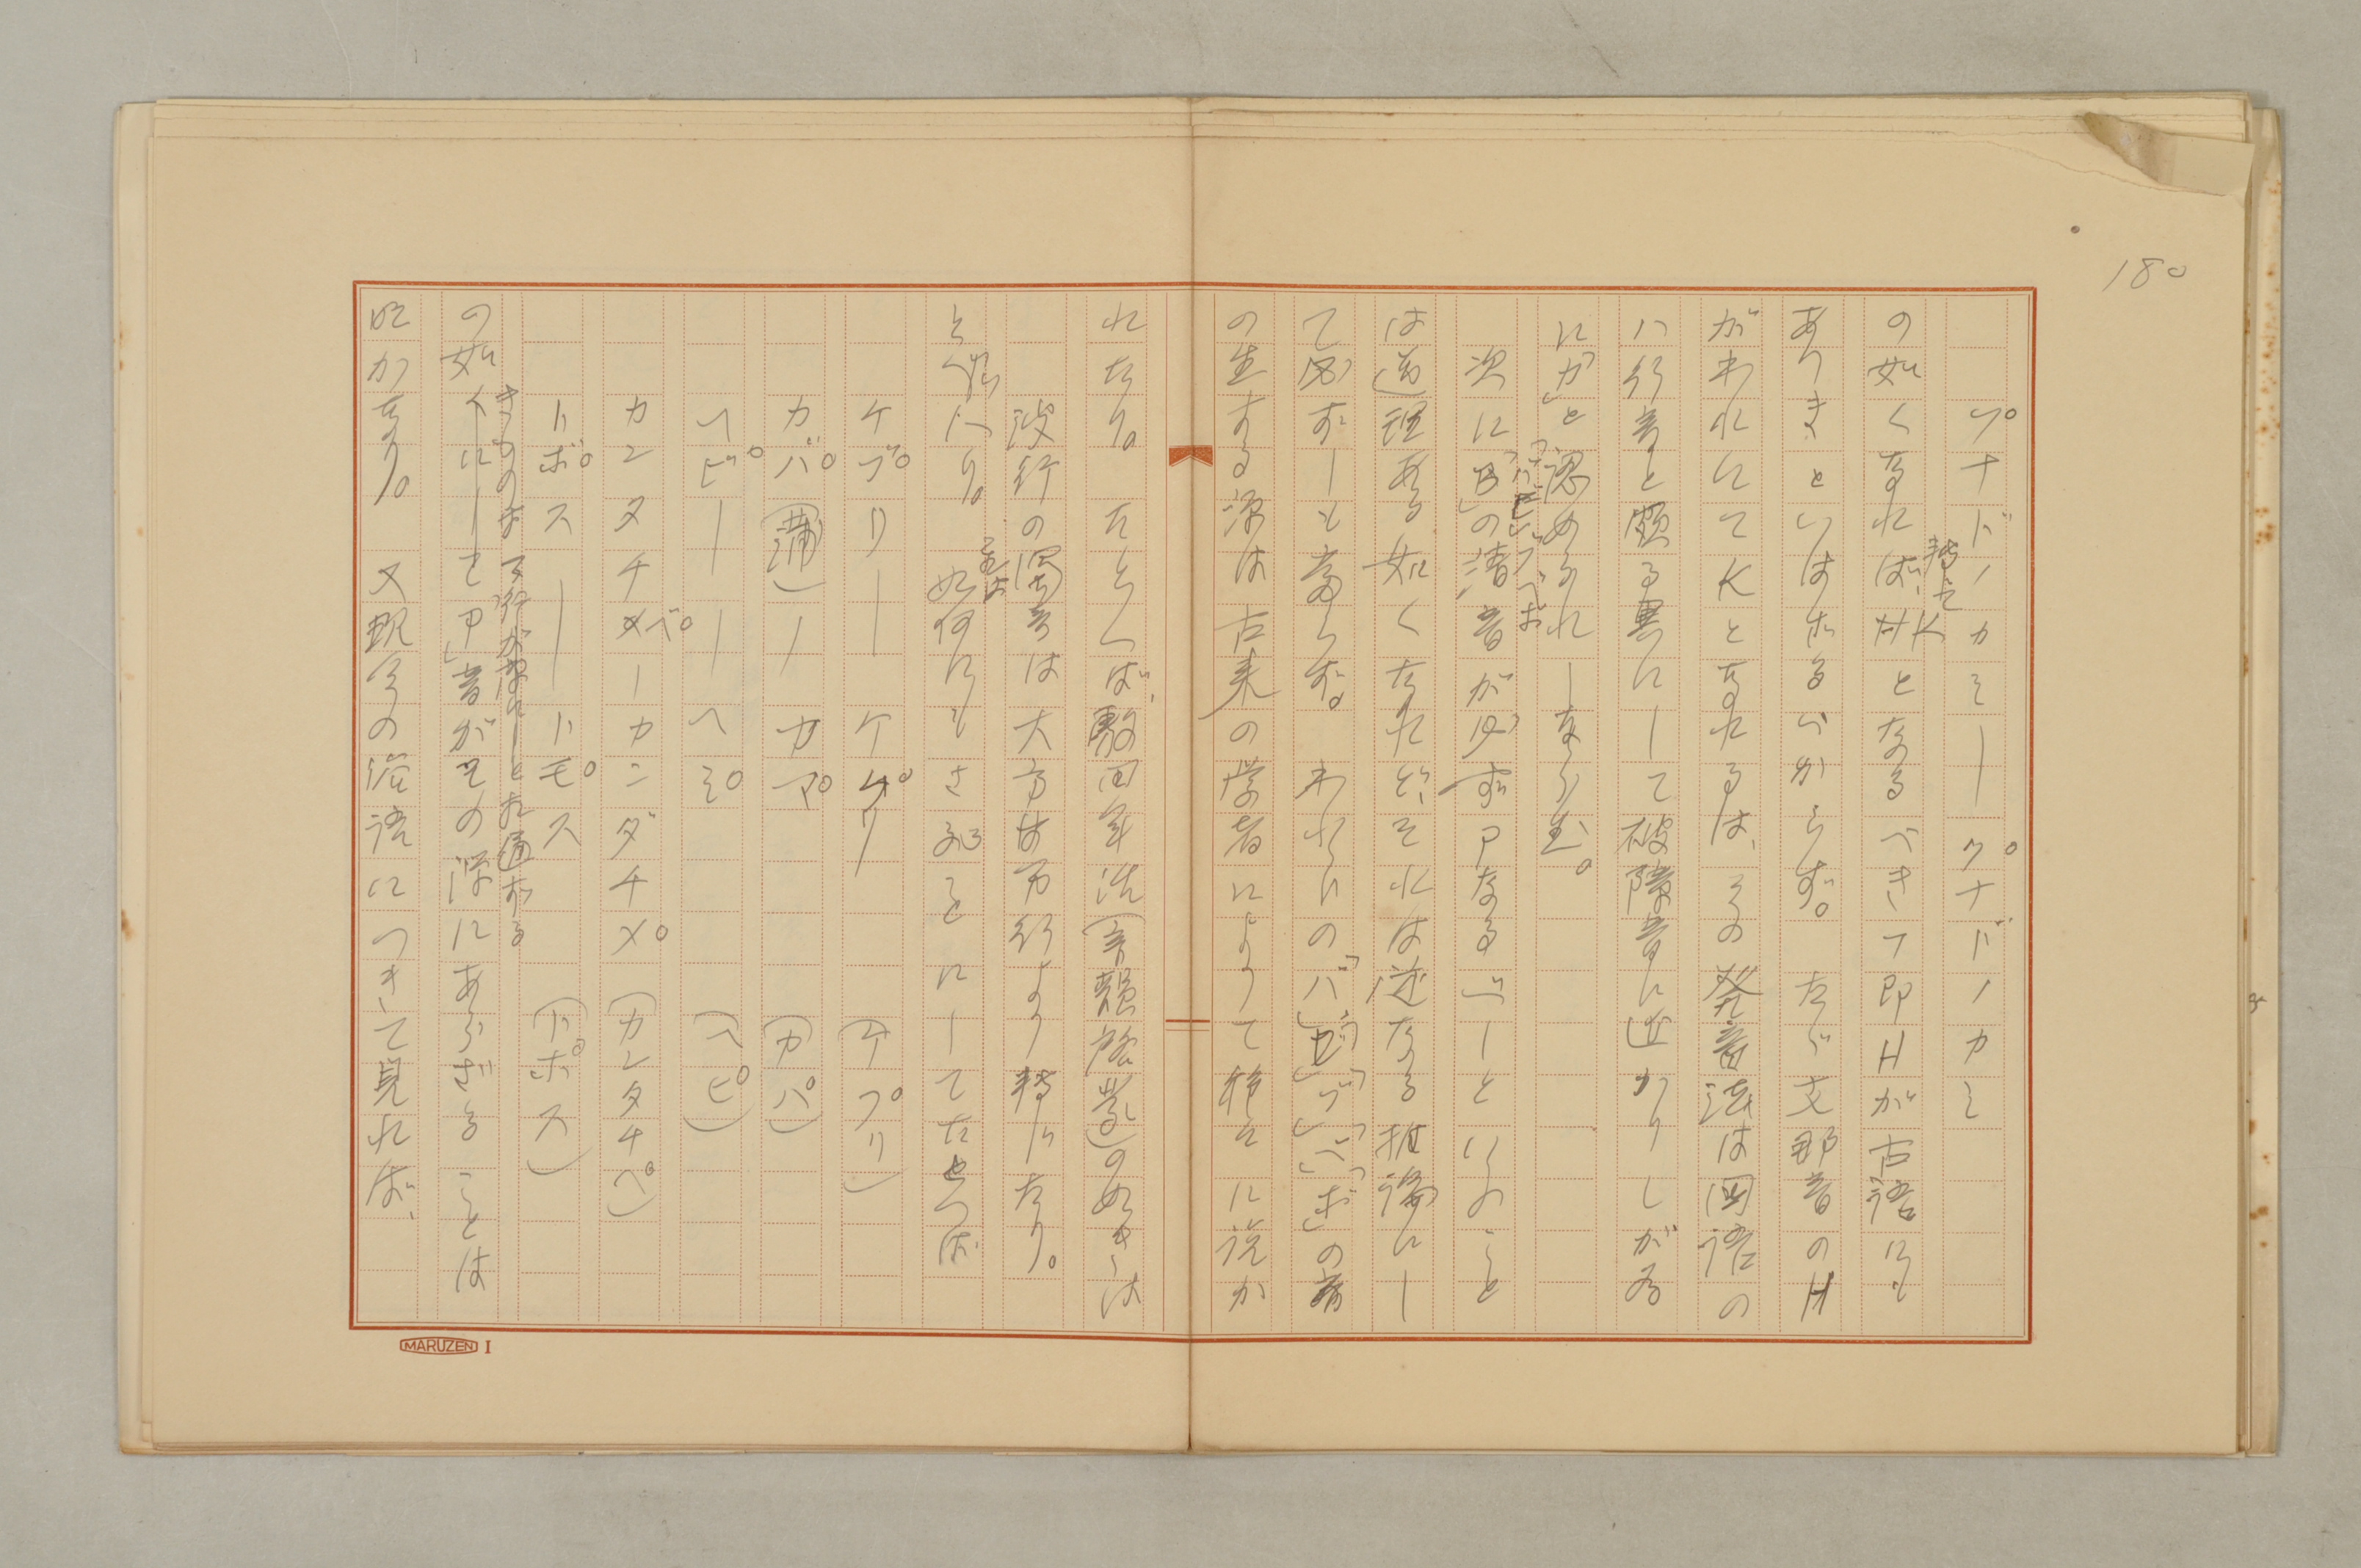 180
フ゜ナドノカミ―― ク゜ナドノカミ
の如くなれば、転じてKとなるべきフ即Hが古語にも
ありきといはざるべからず。たゞ支那音のH
がわれにてKとなれるは、その発音法は国語の
ハ行音と頗る異にして破障音に近かりしが為
にか」と認められしならむ。
「バ」「ビ」「ブ」「ベ」「ボ」
次に「B」の清音が必ずPなるべしといふこと
は道理ある如くなれど、それは逆なる推論にし
て必ずしも当らず。われらの「バ」「ビ」「ブ」「ベ」「ボ」の音
の生ずる源は古来の学者によりて種々に説か
れたり。たとへば、敷田年治(音韻啓蒙)の如きは
波行の濁音は大方は万行より転じたり。
と云へり。そは如何にもさることにしてたとへば
ケブリ―― ケムリ (ケプリ)
カバ(蒲)― カマ (カパ)
ヘビ―― ヘミ (ヘピ)
カンタチベ―カンダチメ (カンタチペ)
トボス―― トモス (トポス)
きものはマ行が濁にしと相通ずる
の如くにして「P」音がその源にあらざることは
明かなり。又現今の俗語につきて見れば、
MARUZEN I